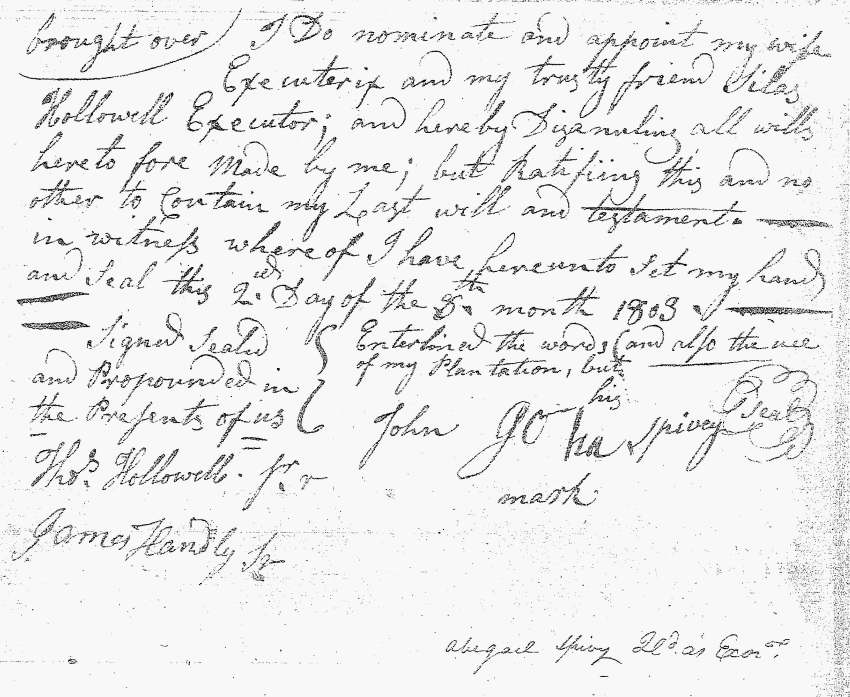 brought over) I Do nominate and appoint my wife
Executerix and my trusty friend Silas
Hollowell Executor; and hereby Disanuling all wills
hereto fore Made by me; but Ratifiing this and no
other to Contain my Last will and testament.
in witness where of I have hereunto Set my hand
and Seal this 2nd Day of the 8th month 1803.
Signed Sealed
and Propounded in
the Presents of us
Enterlined the words (and also the use
of my Plantation, but
his
John Jo hn Spivey Seal
mark
Thos. Hollowell. Jr
James Handly Jr
abegael Spivy Qld. as Exor.